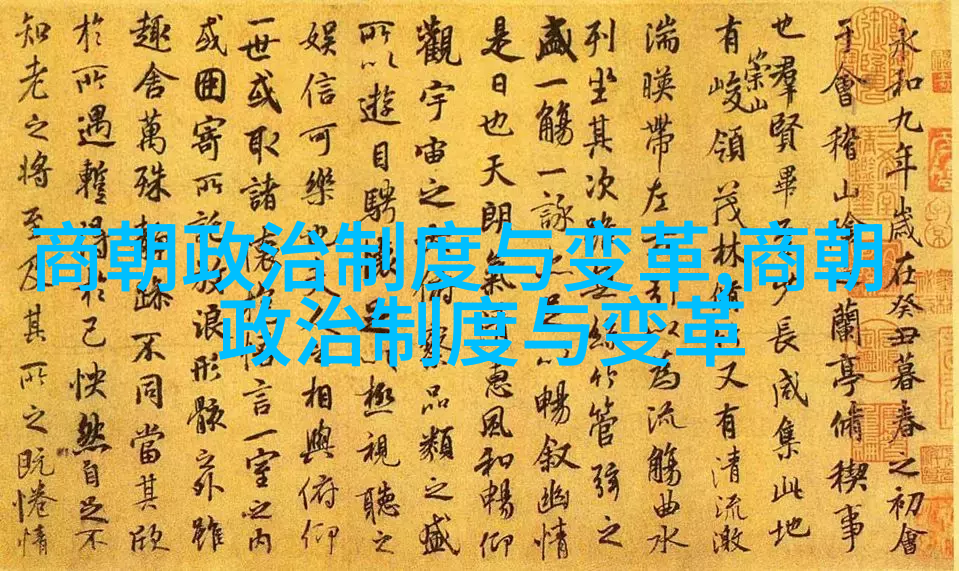 商朝政治制度与变革,商朝
政治制度与变革
永和九年歲在癸丑暮春之初會
于會稽山陰之蘭亭脩稧事
也羣賢畢至少長咸集此地
有崇山峻領茂林脩竹又有清流激
湍暎帶左右引以為流觴曲水
列坐其次雖無絲竹管弦之
盛一觴一詠亦足以暢叙幽情
是日也天朗氣清惠風和暢仰
觀宇宙之大俯察品類之盛
所以遊目騁懷足以極視聽之
娛信可樂也夫人之相與俯仰
一世或取諸懷抱悟言一室之內
或因寄所託放浪形骸之外雖
趣舍萬殊靜躁不同當其欣
於所遇暫得於己怏然自足不
知老之將至及其所之既惓情